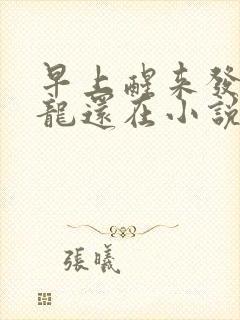 早上醒來發
龍還在小說
張曦